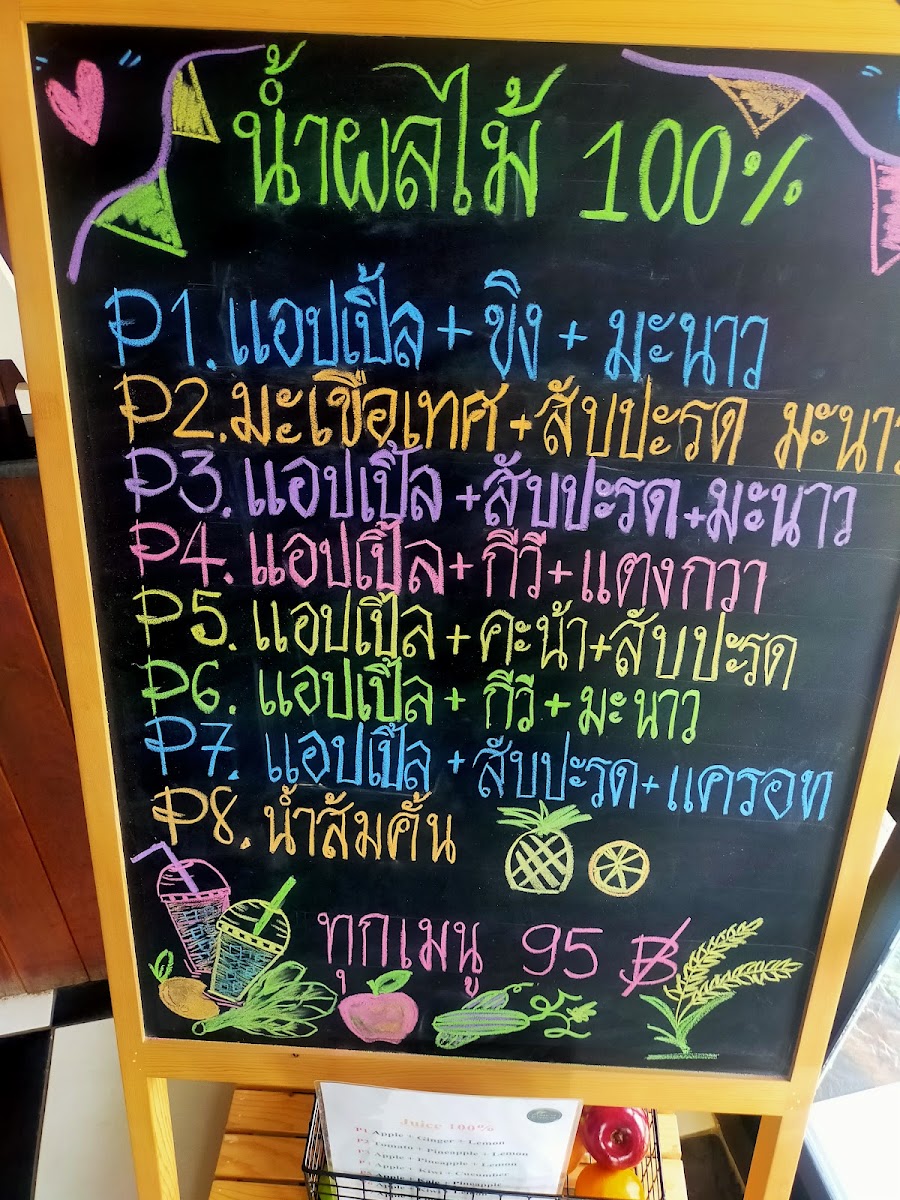 น้ำผลไม้ 100%
P1. แอปเปิ้ล + ขิง + มะนาว
P2. มะเขือเทศ + สับปะรด มะนาว
P3. แอปเปิ้ล + สับปะรด + มะนาว
P4. แอปเปิ้ล + กีวี + แตงกวา
P5. แอปเปิล + คะน้า + สับปะรด
P6. แอปเปิ้ล + กีวี + มะนาว
P7. แอปเปิ้ล + สับปะรด + แครอท
P8. น้ำส้มคั้น
ทุกเมนู 95 ฿
Juice 100%
P1 Apple + Ginger + Lemon
P2 Tomato + Pineapple + Lemon
Apple + Pineapple + Lemon
Apple + Kiwi + Cucumber
Pineapple